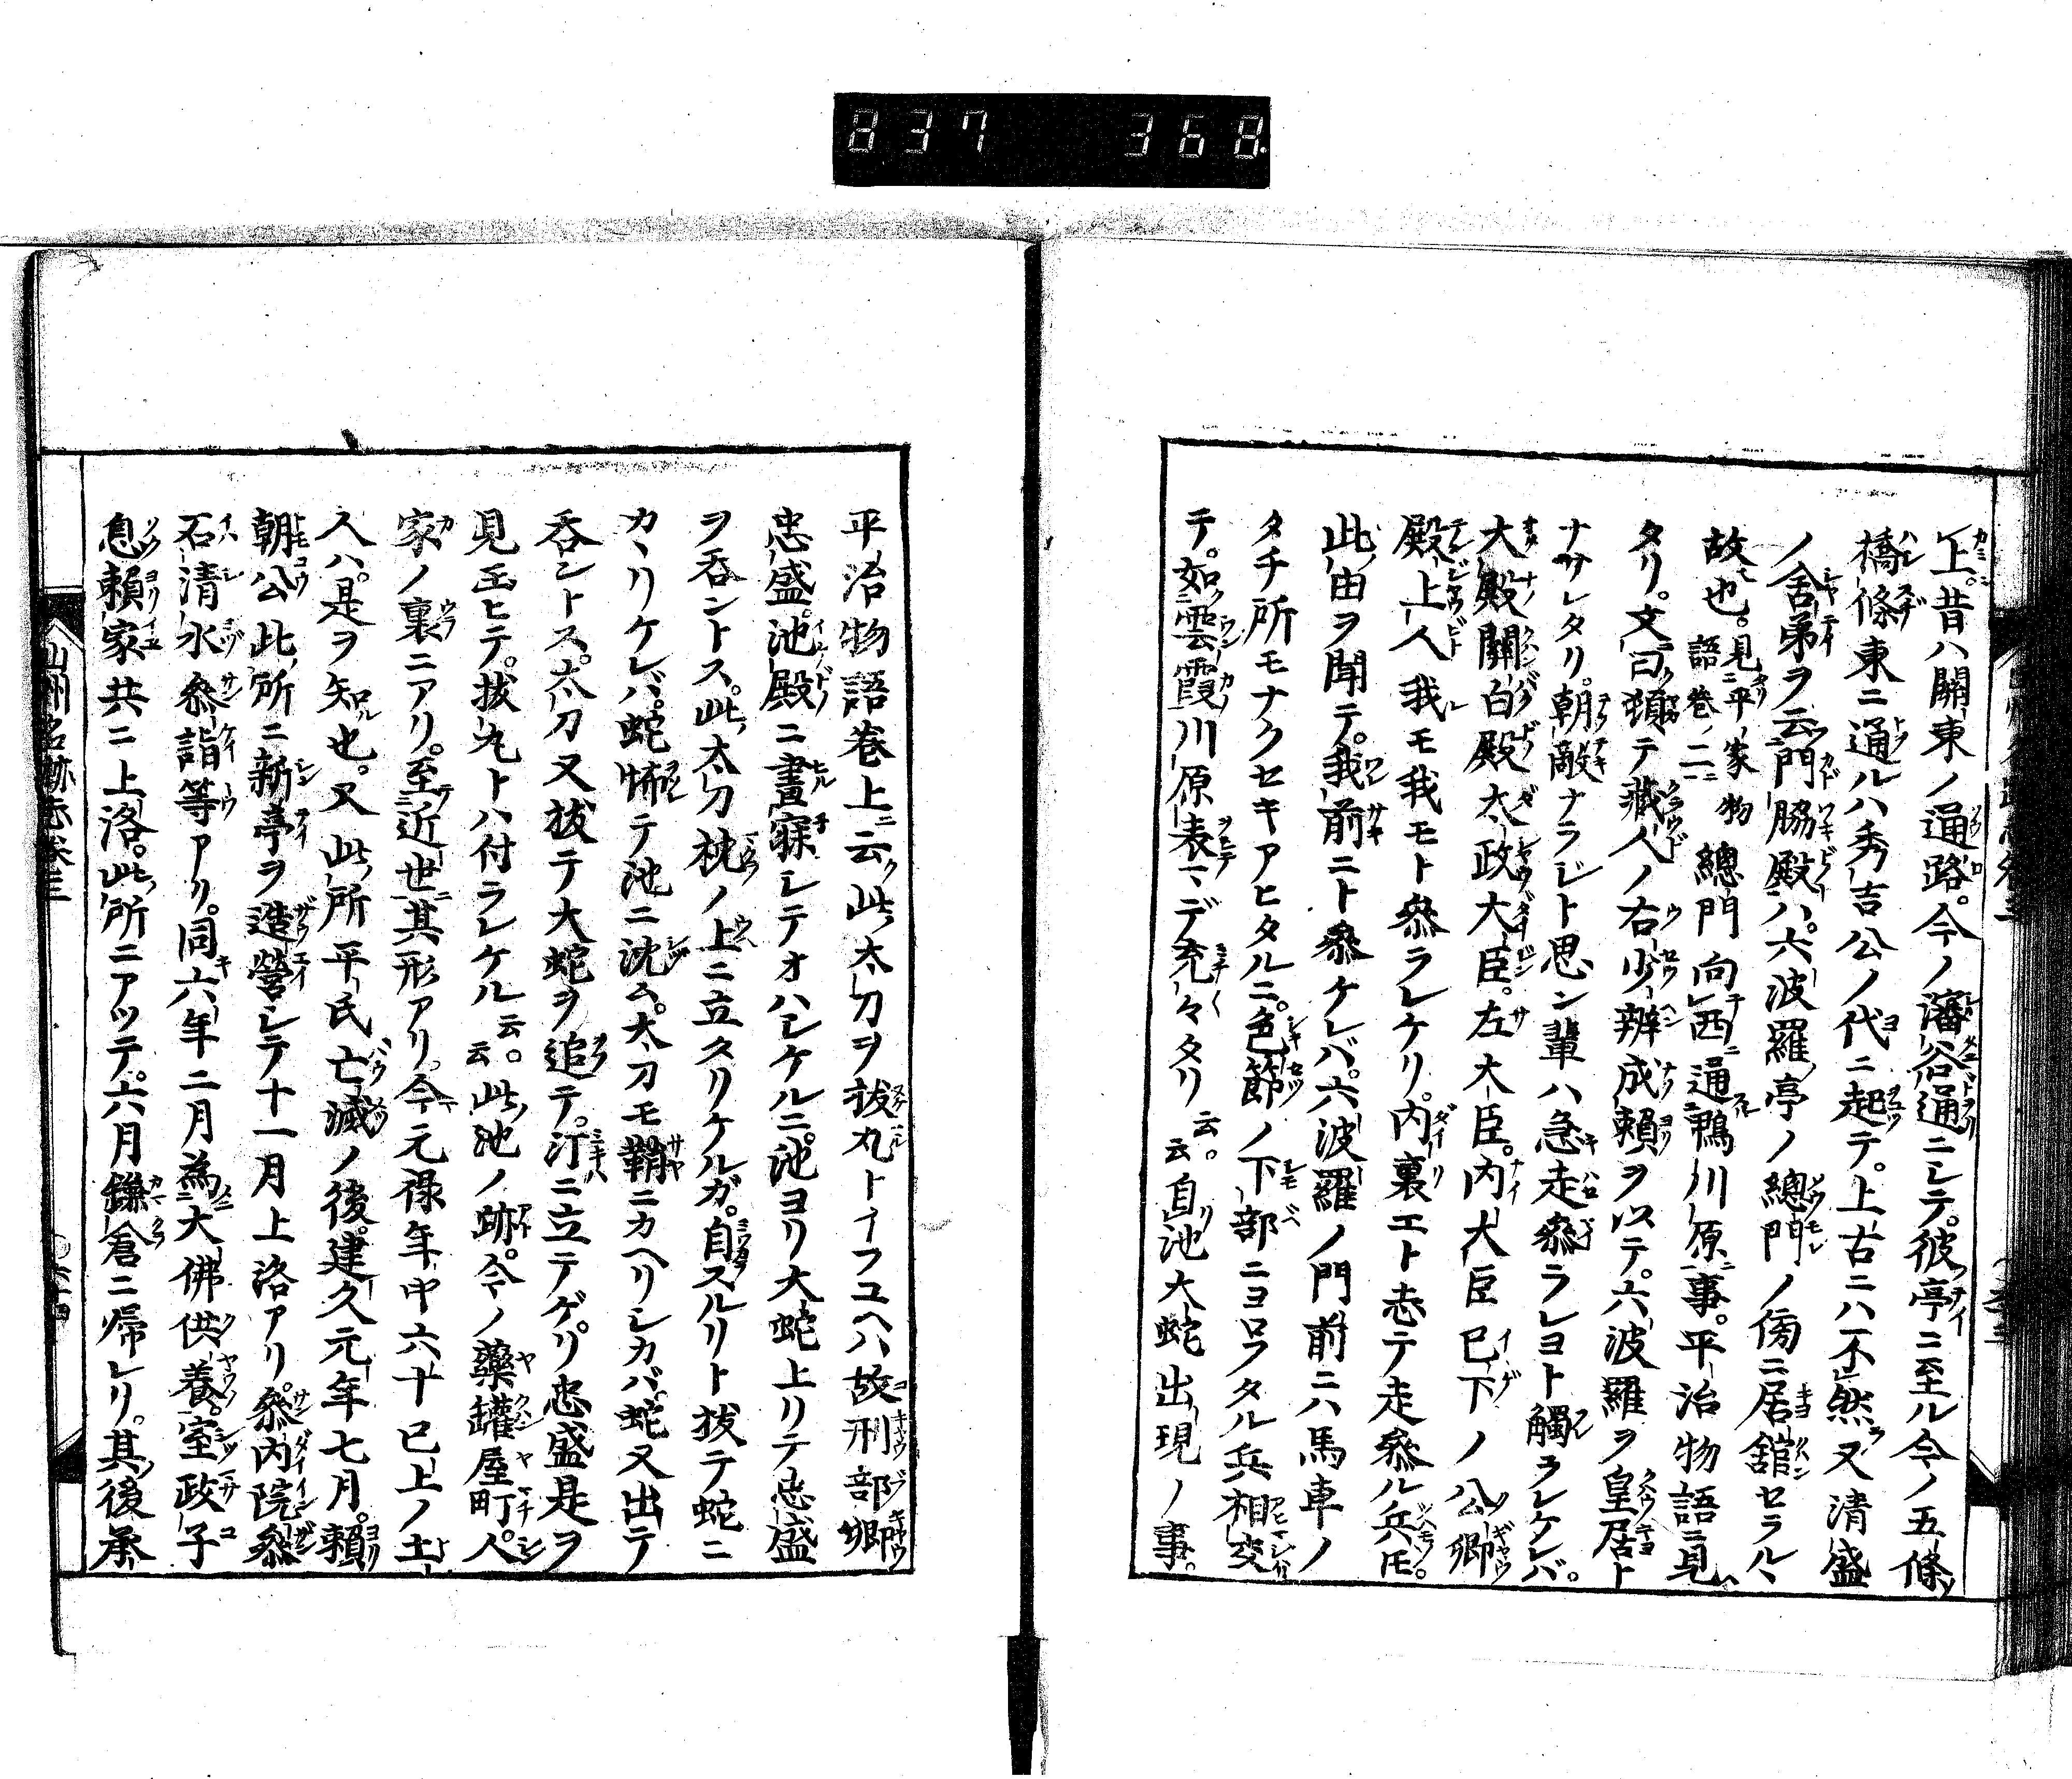 837 368
上。昔ハ關東ノ通路。今ノ瀋谷通ニシテ。彼亭ニ至ル今ノ五條
橋條東ニ通ルハ秀吉公ノ代ニ起テ。上古ニハ不然又清盛
ノ舍弟ヲ云門脇殿ハ六波羅亭ノ總門ノ傍ニ居舘セラルヽ
故也。見平家物語卷二 總門向西通鴨川原事。平治物語ニ見ヘ
タリ。文曰頭テ藏人ノ右少辨成頼ヲ以テ。六波羅ヲ皇居ト
ナサレタリ。朝敵ナラジト思ン輩ハ急走參ラレヨト觸ラレケレバ。
大殿關白殿太政大臣。左大臣。内大臣已下ノ公卿
殿上人我モ我モト參ラレケリ。内裏エト志テ走參ル兵モ。
此由ヲ聞テ。我前ニト參ケレバ。六波羅ノ門前ニハ馬車ノ
タチ所モナクセキアヒタルニ。色節ノ下部ニヨロフタル兵相交
テ。如雲霞川原表マデ充々タリ云云。自池大蛇出現ノ事。
平治物語卷上ニ云此太刀ヲ拔丸トイフユヘハ故刑部卿
忠盛。池殿ニ晝寐シテオハシケルニ。池ヨリ大蛇上リテ忠盛
ヲ呑ントス。此太刀枕ノ上ニ立スリケルガ。自スルリト拔テ蛇ニ
カヽリケレバ。蛇怖テ池ニ沈ム。太刀モ鞘ニカヘリシカバ。蛇又出テ
呑ントス。太刀又拔テ大蛇ヲ追テ。汀ニ立テゲリ忠盛是ヲ
見玉ヒテ。拔丸トハ付ラレケル云云。此池ノ跡。今ノ藥罐屋町人
家ノ裏ニアリ。至近世其形アリ。今元禄年中六十已上ノ土
人ハ。是ヲ知也。又此所平氏亡滅ノ後。建久元年七月。賴
朝公此所ニ新亭ヲ造營シテ十一月上洛アリ。參内院參
石清水參詣等アリ。同六年二月為大佛供養。室政子
息賴家共ニ上洛。此所ニアツテ。六月鎌倉ニ帰レリ。其後承
山州名跡志卷三